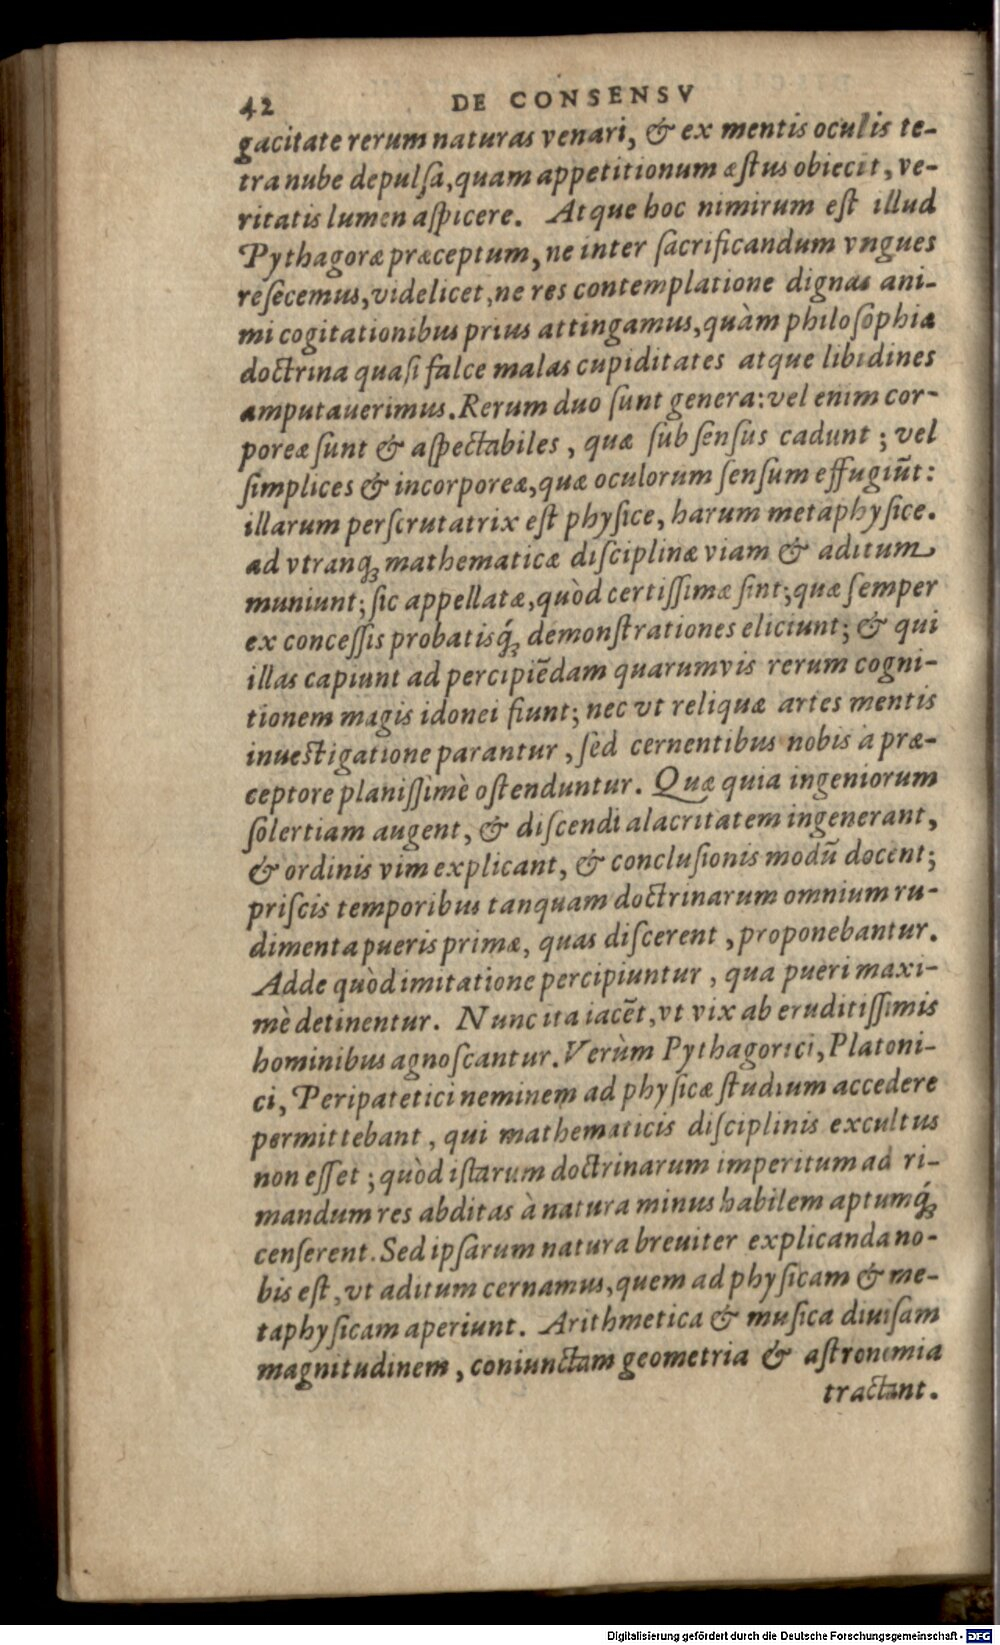 42 DE CONSENSV
gacitate rerum naturas venari, & ex mentis oculis te-
tra nube depulſa, quam appetitionum æſtus obiecit, ve-
ritatis lumen aſpicere. Atque hoc nimirum eſt illud
Pythagoræ præceptum, ne inter ſacrificandum vngues
reſecemus, videlicet, ne res contemplatione dignas ani-
mi cogitationibus prius attingamus, quàm philoſophiæ
doctrina quaſi falce malas cupiditates atque libidines
amputauerimus. Rerum duo ſunt genera: vel enim cor-
poreæ ſunt & aſpectabiles, quæ ſub ſenſus cadunt; vel
ſimplices & incorporeæ, quæ oculorum ſenſum effugiūt:
illarum perſcrutatrix eſt phyſice, harum metaphyſice.
ad vtranq; mathematicæ diſciplinæ viam & aditum
muniunt; ſic appellatæ, quòd certiſſimæ ſint; quæ ſemper
ex conceſſis probatisq́; demonſtrationes eliciunt; & qui
illas capiunt ad percipiēdam quarumvis rerum cogni-
tionem magis idonei fiunt; nec vt reliquæ artes mentis
inueſtigatione parantur, ſed cernentibus nobis à præ-
ceptore planiſſimè oſtenduntur. Quæ quia ingeniorum
ſolertiam augent, & diſcendi alacritatem ingenerant,
& ordinis vim explicant, & concluſionis modū docent;
priſcis temporibus tanquam doctrinarum omnium ru-
dimenta pueris primæ, quas diſcerent, proponebantur.
Adde quòd imitatione percipiuntur, qua pueri maxi-
mè detinentur. Nunc ita iacēt, vt vix ab eruditiſſimis
hominibus agnoſcantur. Verùm Pythagorici, Platoni-
ci, Peripatetici neminem ad phyſicæ ſtudium accedere
permittebant, qui mathematicis diſciplinis excultus
non eſſet; quòd iſtarum doctrinarum imperitum ad ri-
mandum res abditas à natura minus habilem aptumq́;
cenſerent. Sed ipſarum natura breuiter explicanda no-
bis eſt, vt aditum cernamus, quem ad phyſicam & me-
taphyſicam aperiunt. Arithmetica & muſica diuiſam
magnitudinem, coniunctam geometria & aſtronomia
tractant.
Digitalisierung gefördert durch die Deutsche Forschungsgemeinschaft - DFG